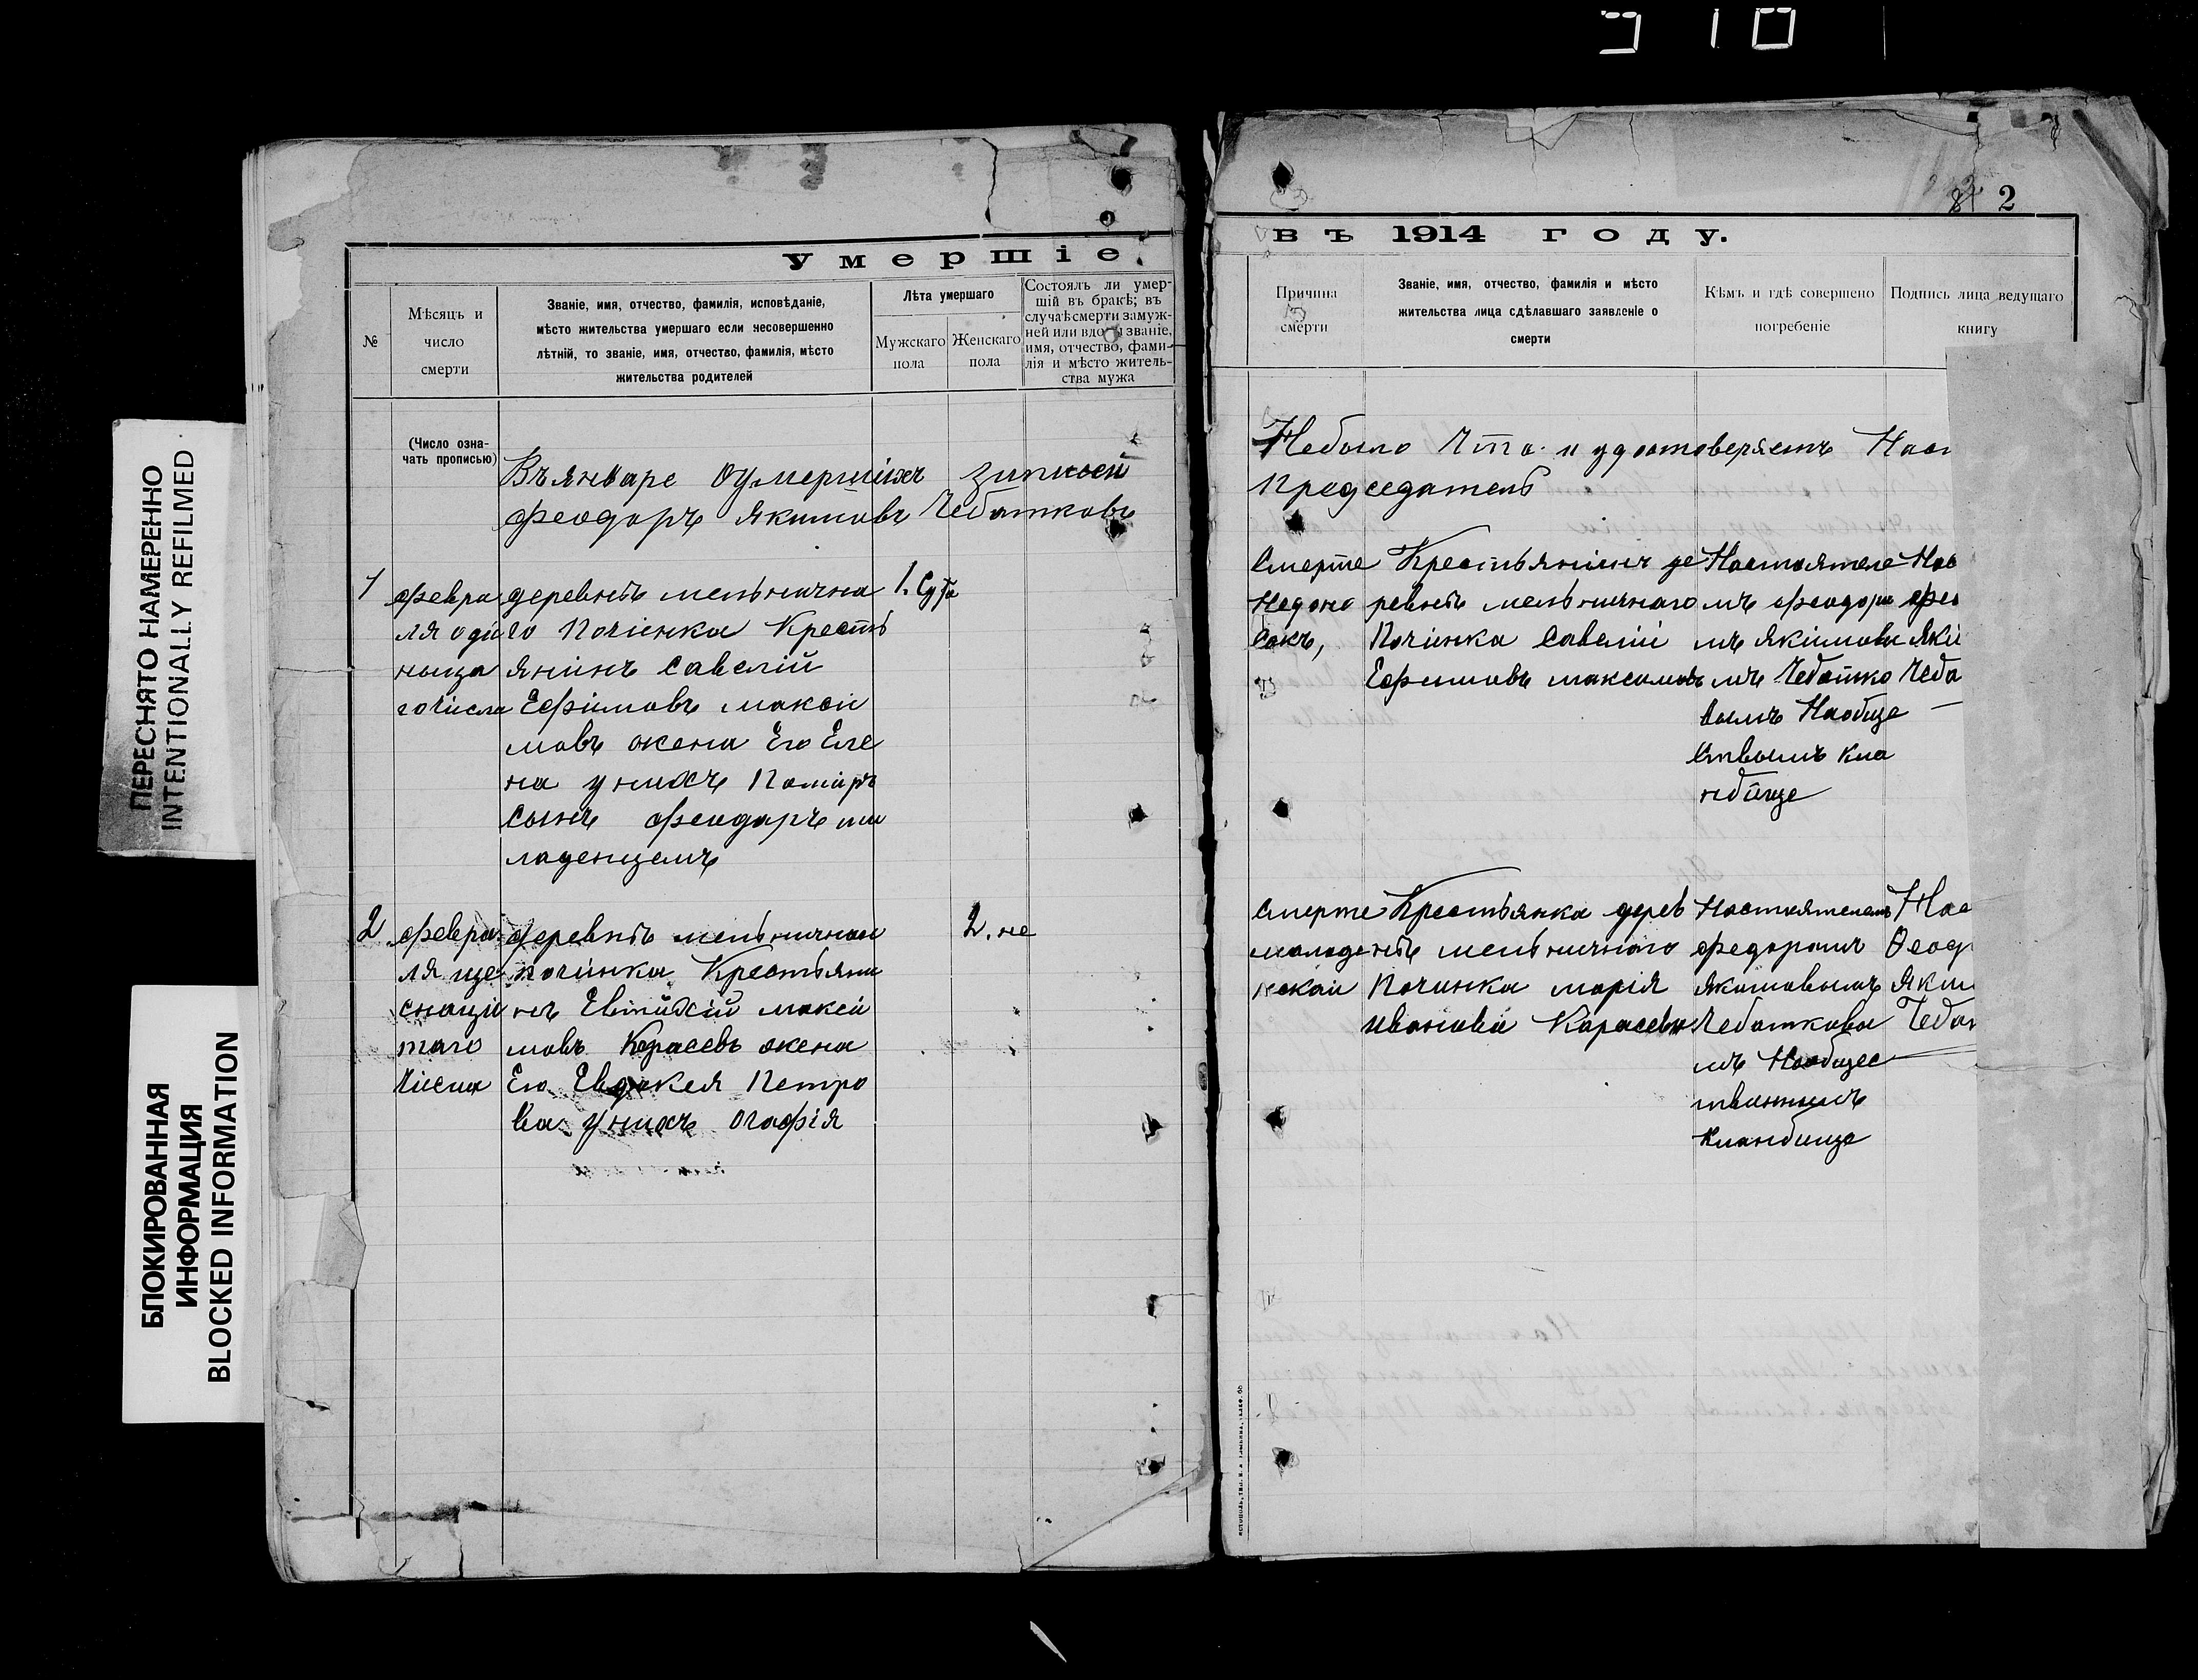 ПЕРЕСНЯТО НАМЕРЕННО
INTENTIONALLY REFILMED
БЛОКИРОВАННАЯ
ИНФОРМАЦИЯ
BLOCKED INFORMATION
Умершіе.
№
Мѣсяцъ и
число
смерти
Званіе, имя, отчество, фамилія, исповѣданіе,
мѣсто жительства умершаго если несовершенно
лѣтній, то званіе, имя, отчество, фамилія, мѣсто
жительства родителей
Лѣта умершаго
Мужскаго
пола
Женскаго
пола
Состоялъ ли умер-
шій въ бракѣ; въ
случаѣ смерти замуж-
ней или вдовы званіе,
имя, отчество, фами-
лія и мѣсто житель-
ства мужа
(Число озна-
чать прописью)
Въ январе оумершіхъ записей
Феодоръ Якимовъ Чебатковъ
1
февра
ля оди
нацa
го числа
деревнѣ мельнична
го Почінка Кресть
янинъ Савелій
Ефимовъ макси
мовъ жена Его Еле
на у нихъ Помиръ
сынъ Феодоръ мла
ладенцемъ
1. Сут
2
февра
ля ше
снаци
таго
числа
деревнѣ мельничнаи
почінка Крестьяни
нъ Евтихій макси
мовъ Карасевъ жена
Его Евдокея Петро
ва у нихъ Огафія
2. не
8 2
въ 1914 году.
Причина
смерти
Званіе, имя, отчество, фамилія и мѣсто
жительства лица сдѣлавшаго заявленіе о
смерти
Кѣмъ и гдѣ совершено
погребеніе
Подпись лица ведущаго
книгу
Небыло Что и удостоверяетъ Наст
Председатель
Смерте
Недоно
сокъ,
Крестьянинъ де
ревнѣ мельничнаго
Почінка Савелій
Ефимовъ максимовъ
Настоятеле
мъ Феодоро
мъ Якімовы
мъ Чебатко
вымъ Наобще
ствымъ кла
дбище
Нас
Фео
Яки
Чеба
Смерте
молоде
нскаи
Крестьянка дерев
нѣ мельничнаго
Починка марія
иванова Карасева
Настоятелемъ
Федоромъ
Якимовымъ
Чебаткова
мъ Наобщес
твеннымъ
Кландбище
Нас
Ѳеод
Яким
Чебат